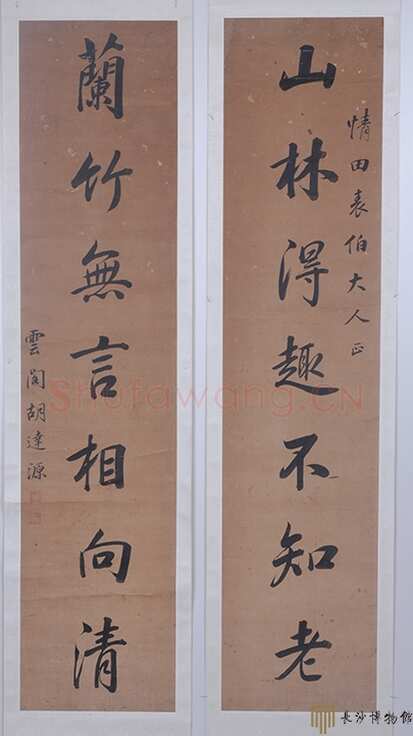 情田表伯大人正
山林得趣不知老
蘭竹無言相向清
雲閣胡達源
Shufawang.CN
長沙博物館